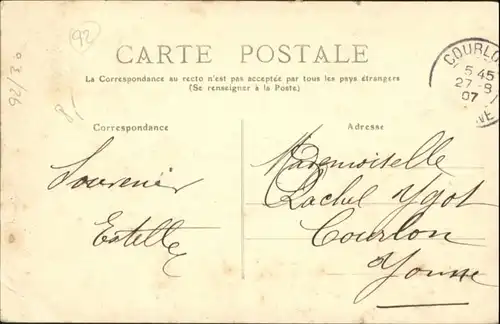 92
CARTE POSTALE
La Correspondance au recto n'est pas acceptée par tous les pays étrangers
(Se renseigner à la Poste)
COURLO
5 45
27-8
07
NE
26/30
8-
Correspondance
Souvenir
Estelle
Adresse
Mademoiselle
Rachel Ygot
Courlon
Yonne